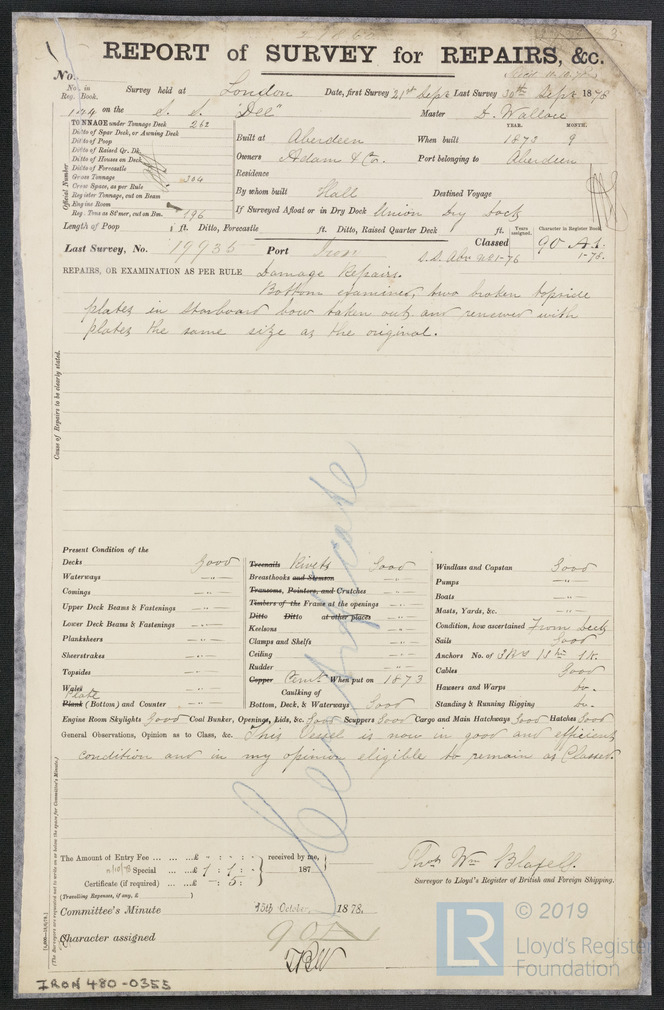 REPORT of SURVEY for REPAIRS, &c.
No.
No. in Reg. Book. Survey held at London Date, first Survey 21st Sept Last Survey 30th Sept 1878
144 on the S. S. "Dee" Master D. Wallace
TONNAGE under Tonnage Deck 262
Ditto of Spar Deck, or Awning Deck
Ditto of Poop
Ditto of Raised Qr. Dk.
Ditto of Houses on Deck
Ditto of Forecastle
Gross Tonnage 304
Crew Space, as per Rule
Register Tonnage, cut on Beam
Engine Room
Reg. Tons as St'mer, cut on Bm. 196
Official Number
YEAR. MONTH.
Built at Aberdeen When built 1873 9
Owners Adam & Co. Port belonging to Aberdeen
Residence
By whom built Hall Destined Voyage
If Surveyed Afloat or in Dry Dock Union Dry Dock
Length of Poop ft. Ditto, Forecastle ft. Ditto, Raised Quarter Deck ft.
Years assigned. Character in Register Book.
Last Survey, No. 19936 Port Iron Classed 90 A1
S.S. Abn 1-76 1-76.
REPAIRS, OR EXAMINATION AS PER RULE Damage Repairs.
Bottom examined, two broken topside
plates in starboard bow taken out and renewed with
plates the same size as the original.
Cause of Repairs to be clearly stated.
Certificate
Present Condition of the
Decks Good
Waterways - " -
Comings - " -
Upper Deck Beams & Fastenings - " -
Lower Deck Beams & Fastenings - " -
Planksheers - " -
Sheerstrakes - " -
Topsides - " -
Wales - " -
Plate
Plank (Bottom) and Counter - " -
Treenails Rivets Good
Breasthooks and Stemson - " -
Transoms, Pointers, and Crutches - " -
Timbers of the Frame at the openings - " -
Ditto Ditto at other places - " -
Keelsons - " -
Clamps and Shelfs - " -
Ceiling - " -
Rudder - " -
Copper Cemt. When put on 1873
Caulking of
Bottom, Deck, & Waterways Good
Windlass and Capstan Good
Pumps - " -
Boats - " -
Masts, Yards, &c. - " -
Condition, how ascertained From Deck
Sails Good
Anchors No. of 3 Brs 1 St 1 K.
Cables Good
Hausers and Warps Do.
Standing & Running Rigging Do.
Engine Room Skylights Good Coal Bunker, Openings, Lids, &c. Good Scuppers Good Cargo and Main Hatchways Good Hatches Good
General Observations, Opinion as to Class, &c. This Vessel is now in good and efficient
condition and in my opinion eligible to remain as Classed.
The Amount of Entry Fee ... £ - : - : - received by me,
Special ... £ 1 : 1 : - 187
Certificate (if required) ... £ - : 5 :
(Travelling Expenses, if any, £ )
Thos. Wm. Blafell.
Surveyor to Lloyd's Register of British and Foreign Shipping.
Committee's Minute 15th October 1878.
Character assigned 90A1
(The Surveyors are requested not to write on or below the space for Committee's Minute.)
© 2019
LR
Lloyd's Register
Foundation
IRON 480-0355